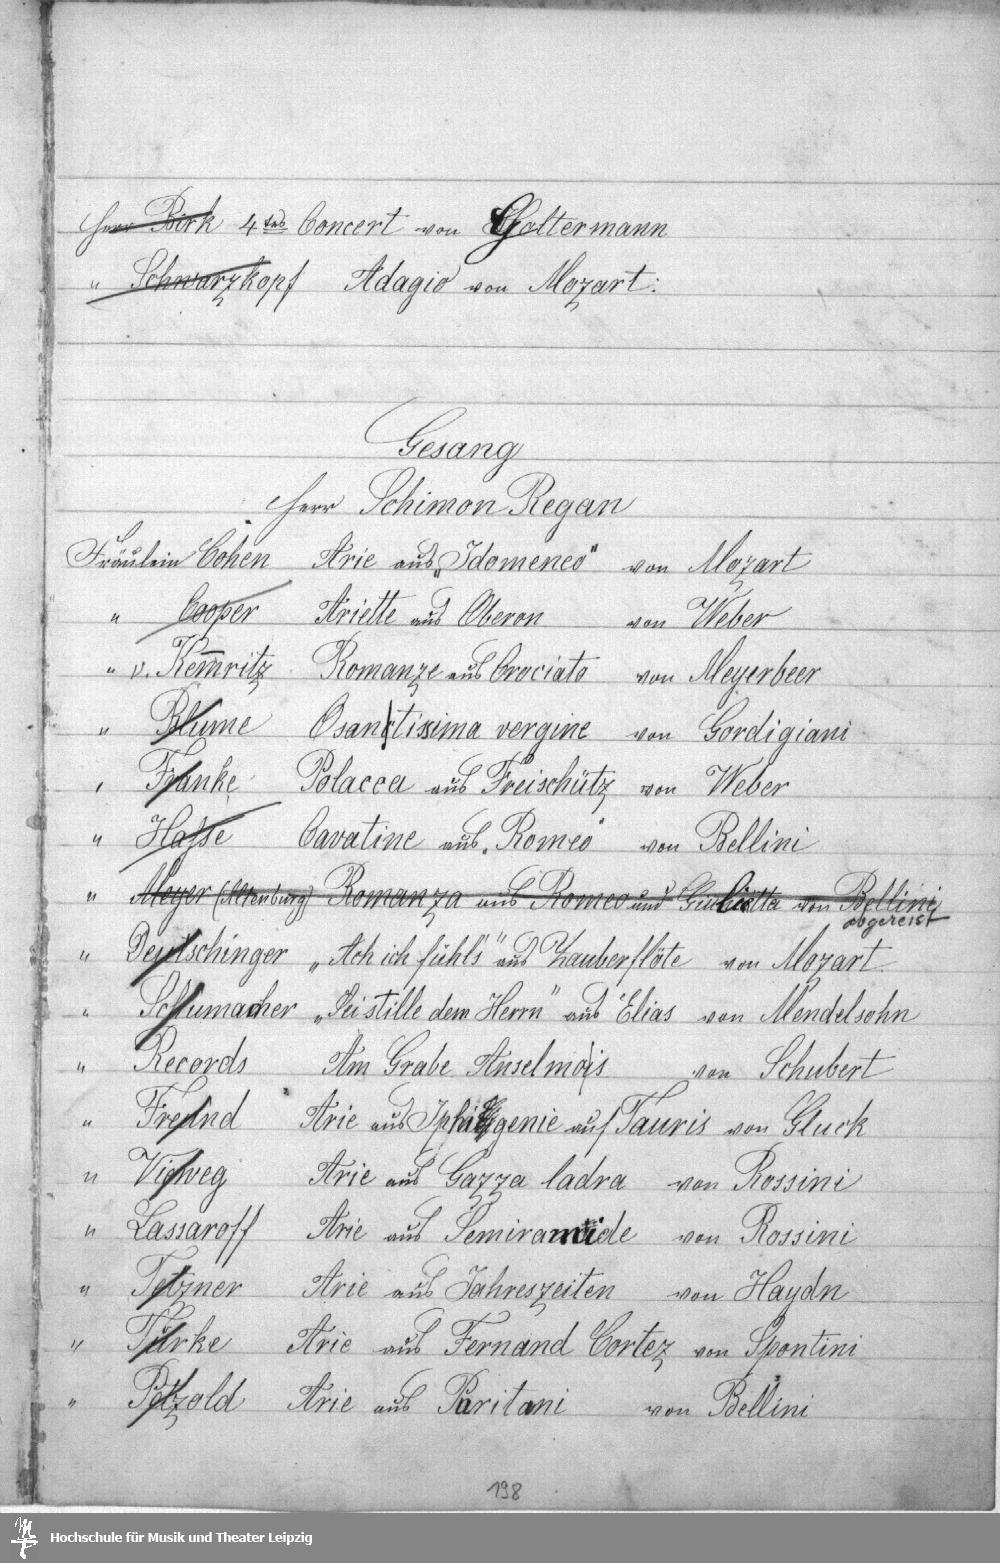 Herr Birk 4tes Concert von Goltermann
" Schwarzkopf Adagio von Mozart.
Gesang
Herr Schimon Regan
Fräulein Cohen Arie aus „Idomeneo" von Mozart
" Cooper Ariette aus Oberon von Weber
" v. Kem̅ritz Romanze aus Crociato von Meyerbeer
" Blume Osanctissima vergine von Gordigiani
" Franke Polacca aus Freischütz von Weber
" Hasse Cavatine aus „Romeo" von Bellini
" Meyer (Altenburg) Romanza aus Romeo und Giulietta von Bellini
abgereist
" Deutschinger „Ach ich fühl's" aus Zauberflöte von Mozart
" Schumacher „Sei stille dem Herrn" aus Elias von Mendelsohn
" Records Am Grabe Anselmo's von Schubert
" Freund Arie aus Iphigenie auf Tauris von Gluck
" Vieweg Arie aus Gazza ladra von Rossini
" Lassaroff Arie aus Semiramide von Rossini
" Tetzner Arie aus Jahreszeiten von Haydn
" Türke Arie aus Fernand Cortez von Spontini
" Petzold Arie aus Puritani von Bellini
198
Hochschule für Musik und Theater Leipzig